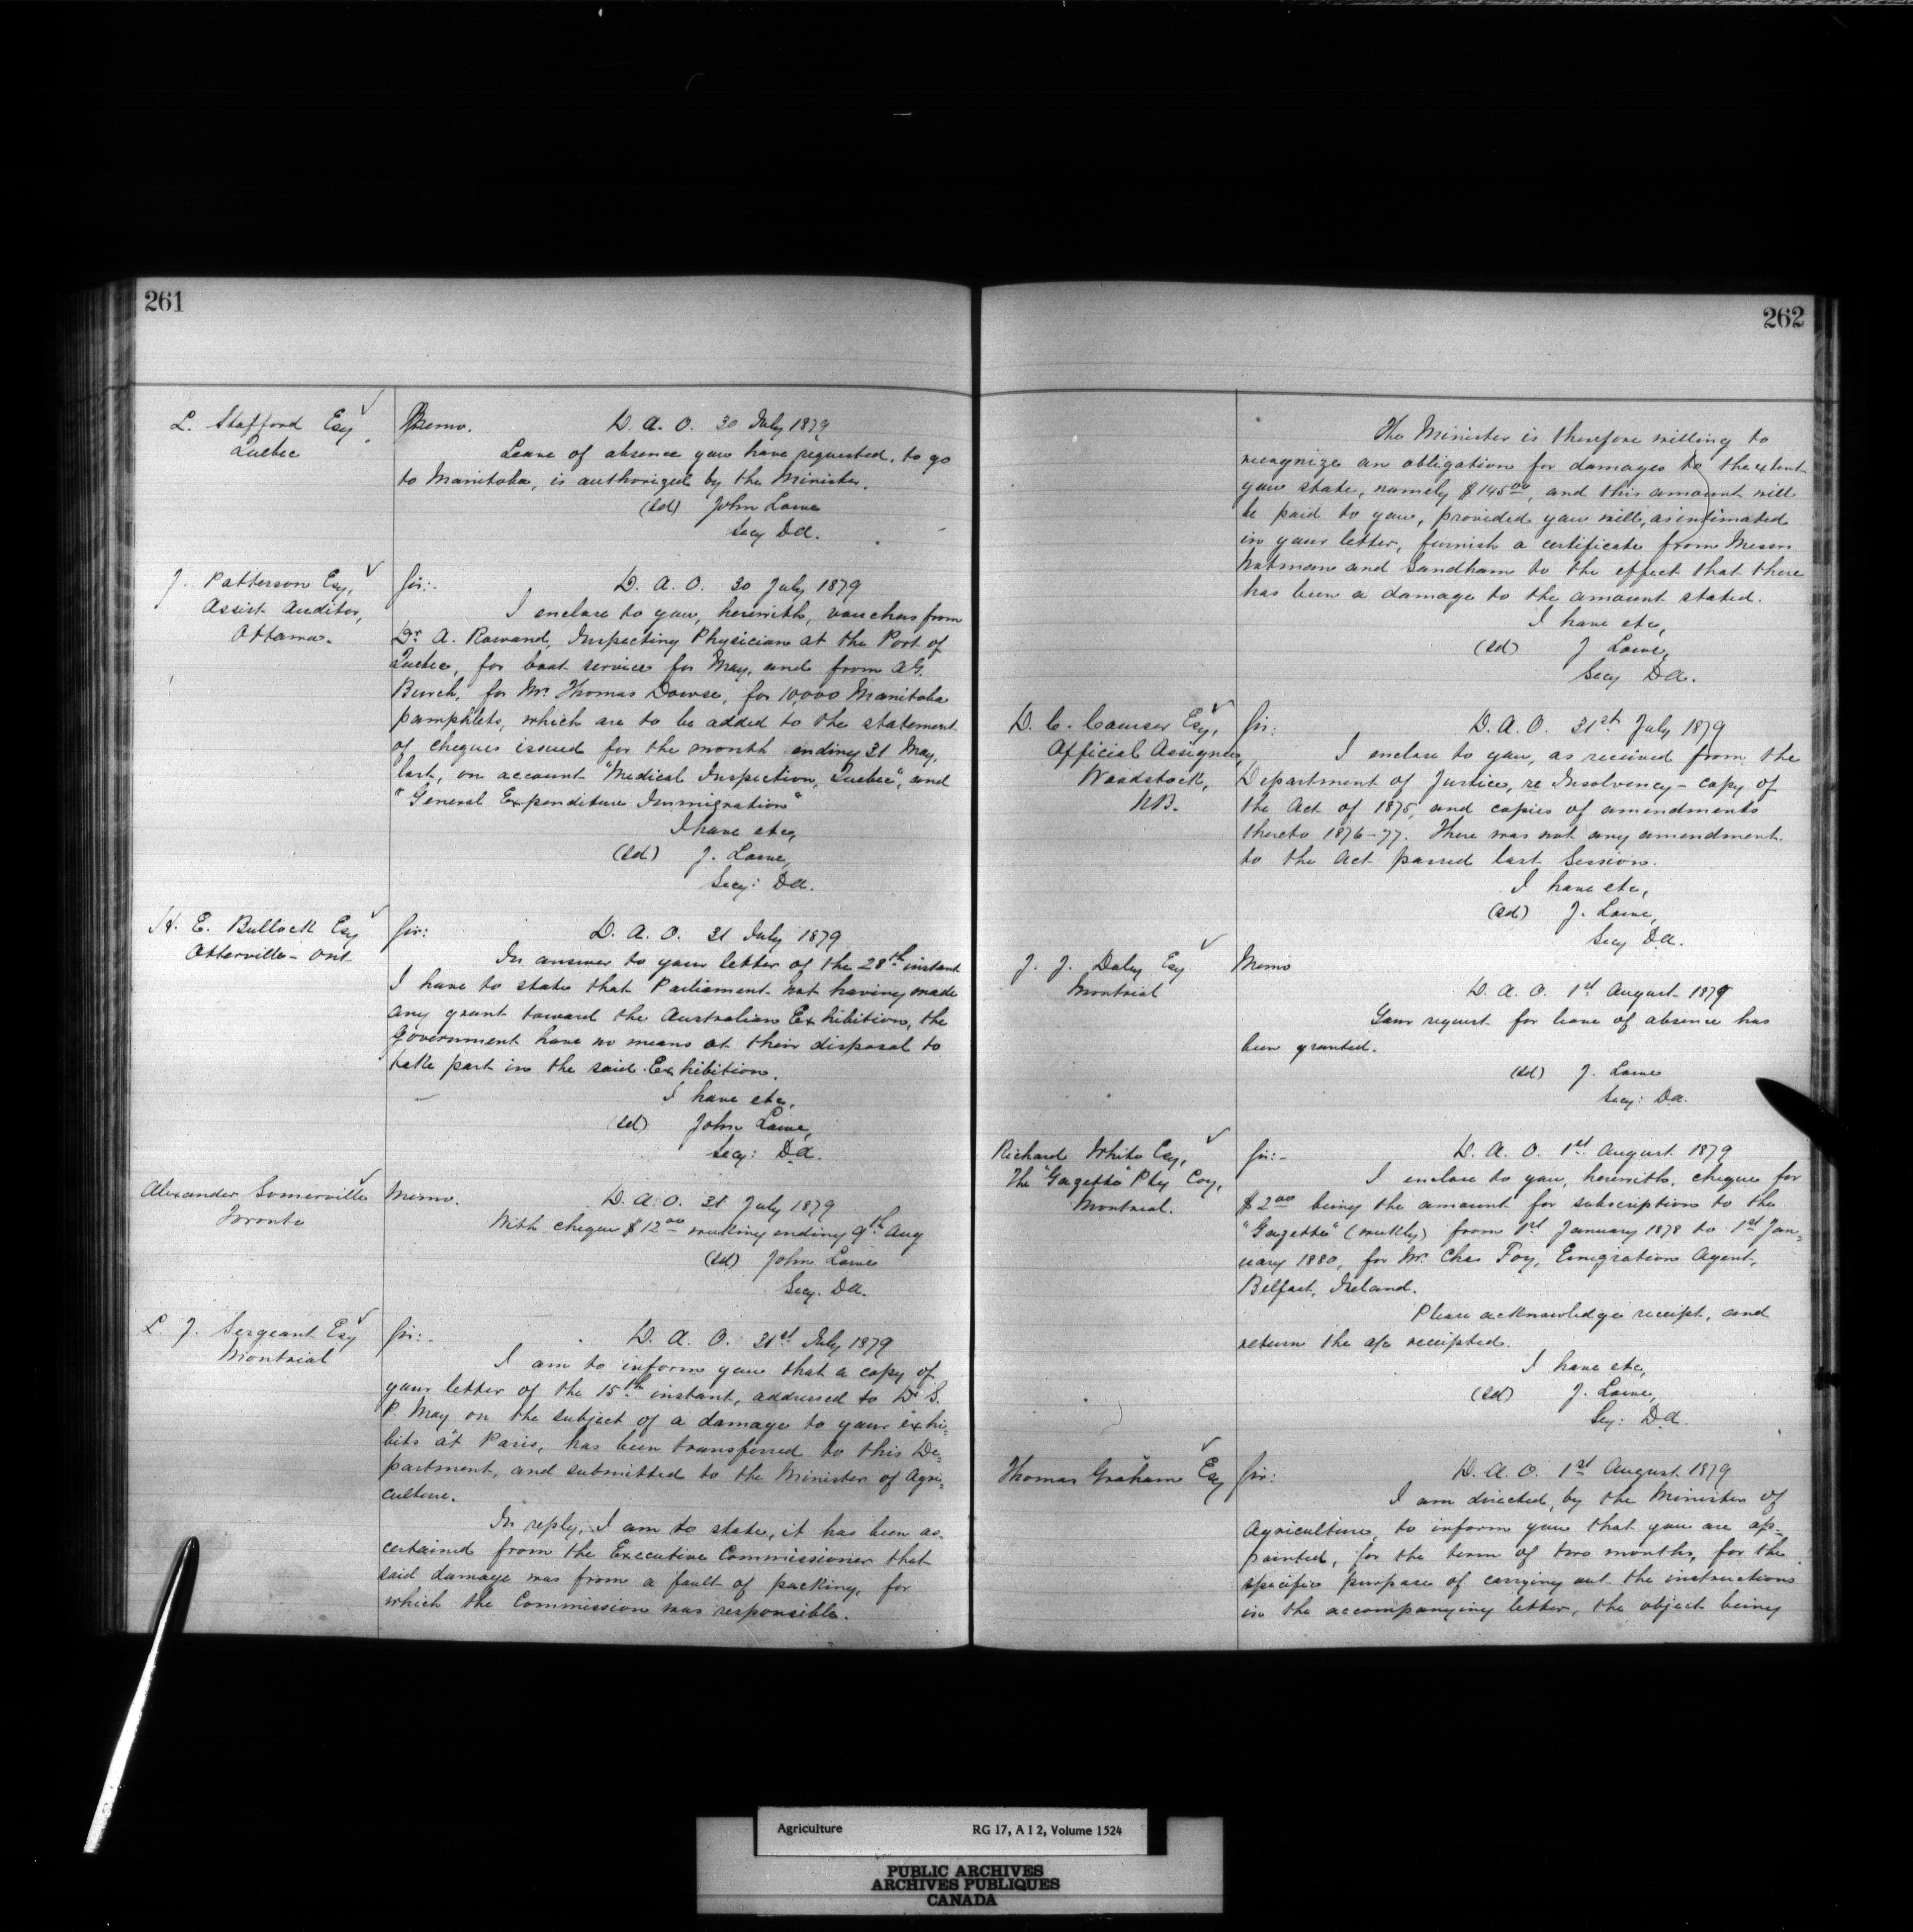 261
L. Stafford Esq
Quebec
Memo. D. A. O. 30 July 1879
Leave of absence you have requested, to go
to Manitoba, is authorized by the Minister.
(Sd) John Lowe
Secy DA.
J. Patterson Esq,
Assist Auditor,
Ottawa.
Sir:- D. A. O. 30 July 1879
I enclose to you, herewith, vouchers from
Dr. A. Rowand, Inspecting Physician at the Port of
Quebec, for boat service for May, and from A.G.
Burch, for Mr. Thomas Dowse, for 10,000 Manitoba
pamphlets, which are to be added to the statement
of cheques issued for the month ending 31 May,
last, on account "Medical Inspection, Quebec", and
"General Expenditure Immigration"
I have etc,
(Sd) J. Lowe,
Secy: DA.
H. E. Bullock Esq
Otterville - Ont
Sir: D. A. O. 31 July 1879
In answer to your letter of the 28th instant
I have to state that Parliament not having made
any grant toward the Australian Exhibition, the
Government have no means at their disposal to
take part in the said Exhibition.
I have etc,
(Sd) John Lowe,
Secy: DA.
Alexander Somerville
Toronto
Memo. D. A. O. 31 July 1879
With cheque $12.00 ending 9th Aug
(Sd) John Lowe
Secy. DA.
L. J. Sergeant Esq
Montreal
Sir:- D. A. O. 31st July 1879
I am to inform you that a copy of
your letter of the 15th instant, addressed to Dr S.
P. May on the subject of a damage to your exhi-
bits at Paris, has been transferred to this De-
partment, and submitted to the Minister of Agri-
culture.
In reply, I am to state, it has been as
certained from the Executive Commissioner that
said damage was from a fault of packing, for
which the Commission was responsible.
262
The Minister is therefore willing to
recognize an obligation for damages to the extent
you state, namely $145.00, and this amount will
be paid to you, provided you will, as intimated
in your letter, furnish a certificate from Messrs
Notman and Sandham to the effect that there
has been a damage to the amount stated.
I have etc,
(Sd) J Lowe,
Secy DA.
D. C. Esq,
Official Assignee,
Woodstock,
NB.
Sir: D. A. O. 31st July 1879
I enclose to you, as received from the
Department of Justice, re Insolvency - copy of
the Act of 1875, and copies of amendments
thereto 1876-77. There was not any amendment
to the Act passed last Session.
I have etc,
(Sd) J. Lowe,
Secy DA.
J. J. Daley Esq
Montreal
Memo
D. A. O. 1st August 1879
Your request for leave of absence has
been granted.
(Sd) J. Lowe
Secy: DA.
Richard White Esq,
The "Gazette" Ptg Coy,
Montreal.
Sir:- D. A. O. 1st August 1879
I enclose to you, herewith, cheque for
$2.00 being the amount for subscription to the
"Gazette" (weekly) from 1st January 1878 to 1st Jan-
uary 1880, for Mr. Chas Foy, Emigration Agent,
Belfast, Ireland.
Please acknowledge receipt, and
return the a/c receipted.
I have etc,
(Sd) J. Lowe,
Secy: DA.
Thomas Graham Esq
Sir: D. A. O. 1st August 1879
I am directed, by the Minister of
Agriculture, to inform you that you are ap-
pointed, for the term of two months, for the
specific purpose of carrying out the instructions
in the accompanying letter, the object being
Agriculture RG 17, A I 2, Volume 1524
PUBLIC ARCHIVES
ARCHIVES PUBLIQUES
CANADA